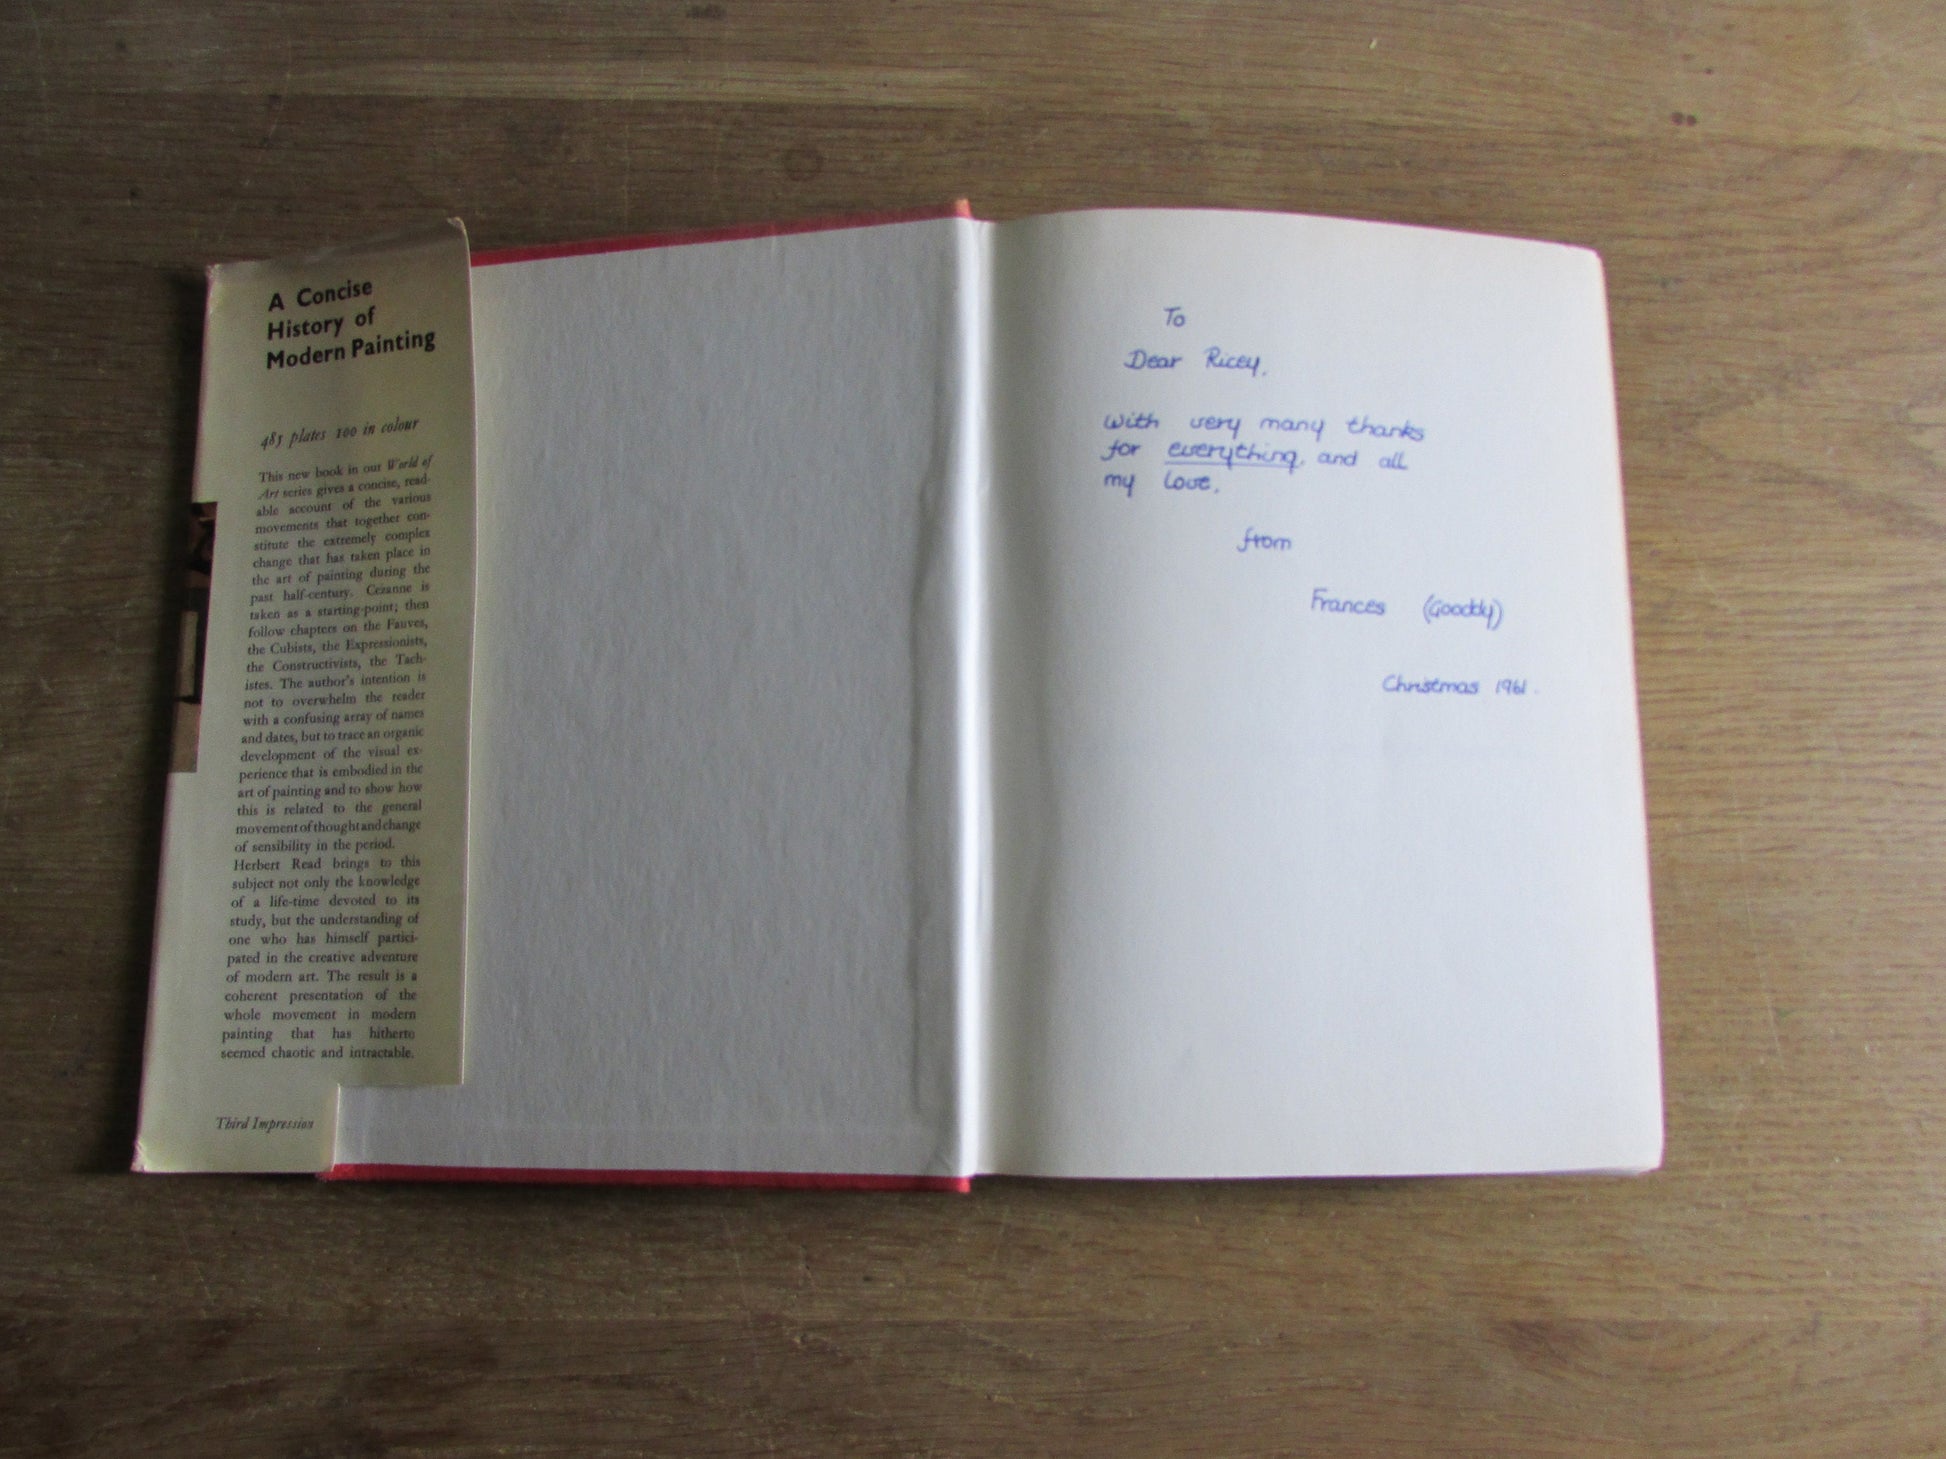 A Concise
History of
Modern Painting
485 plates 100 in colour
This new book in our World of
Art series gives a concise, read-
able account of the various
movements that together con-
stitute the extremely complex
change that has taken place in
the art of painting during the
past half-century. Cézanne is
taken as a starting-point; then
follow chapters on the Fauves,
the Cubists, the Expressionists,
the Constructivists, the Tach-
istes. The author's intention is
not to overwhelm the reader
with a confusing array of names
and dates, but to trace an organic
development of the visual ex-
perience that is embodied in the
art of painting and to show how
this is related to the general
movement of thought and change
of sensibility in the period.
Herbert Read brings to this
subject not only the knowledge
of a life-time devoted to its
study, but the understanding of
one who has himself partici-
pated in the creative adventure
of modern art. The result is a
coherent presentation of the
whole movement in modern
painting that has hitherto
seemed chaotic and intractable.
Third Impression
To
Dear Ricey,
with very many thanks
for everything, and all
my love,
from
Frances (Gooddy)
Christmas 1961.